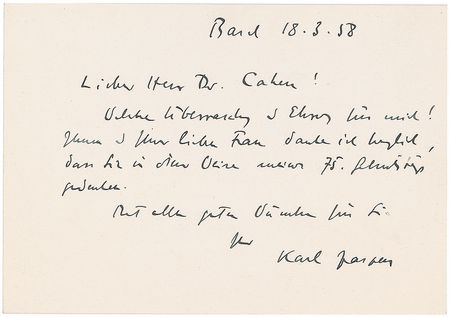 Basel 18.3.58
Lieber Herr Dr. Cahen!
Welche Überraschg u Ehrg für mich!
Ihnen u Ihrer lieben Frau danke ich herzlich,
dass Sie in dieser Weise meines 75. Geburtstags
gedenken.
Mit allen guten Wünschen für Sie
Ihr
Karl Jaspers